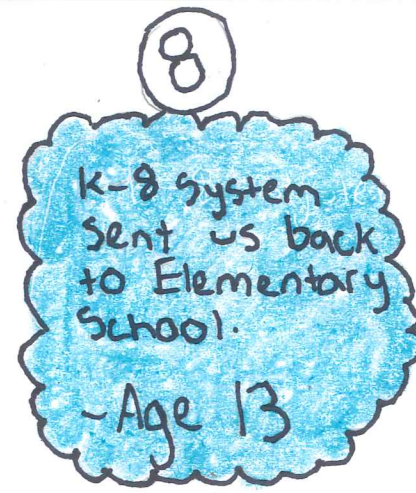 8
K-8 system
sent us back
to Elementary
School.
-Age 13